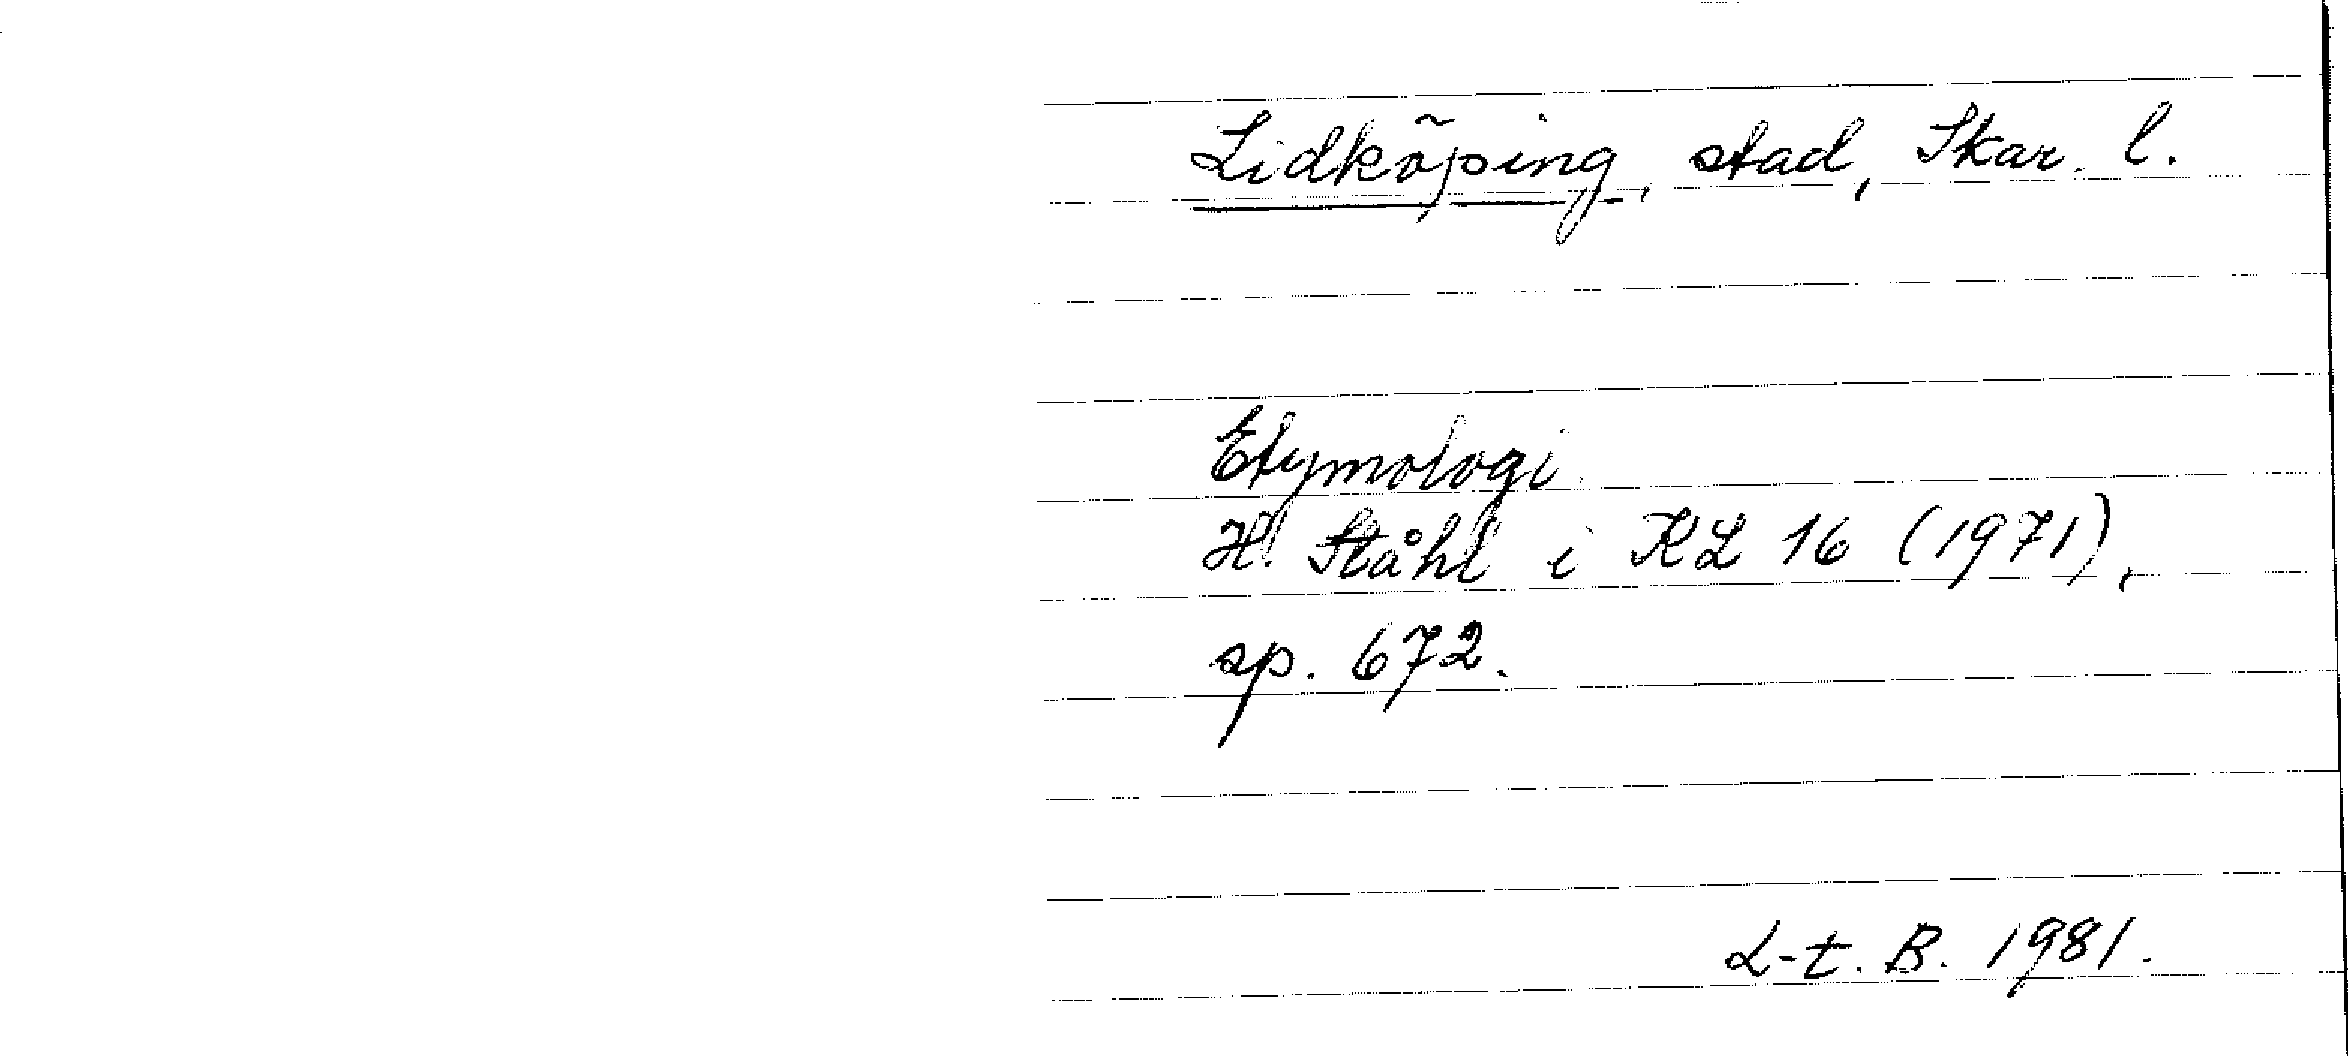 Lidköping, stad, Skar. l.
Etymologi.
H. Ståhl i KL 16 (1971),
sp. 672.
L-t. B. 1981.